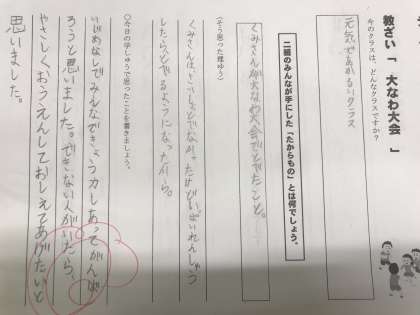 教ざい「 大なわ大会 」
今のクラスは、どんなクラスですか？
元気であかるいクラス
二組のみんなが手にした「たからもの」とは何でしょう。
くみさんが大なわ大会でとべたこと。
（そう思った理ゆう）
くみさんは、さいしょとべなかったけどいっぱいれんしゅう
したらとべるようになったから。
○今日の学しゅうで思ったことを書き出しょう。
いじめなしでみんなできょう力しあってがんば
ろうと思いました。できない人がいたら、
やさしくおうえんしておしえてあげたいと
思いました。